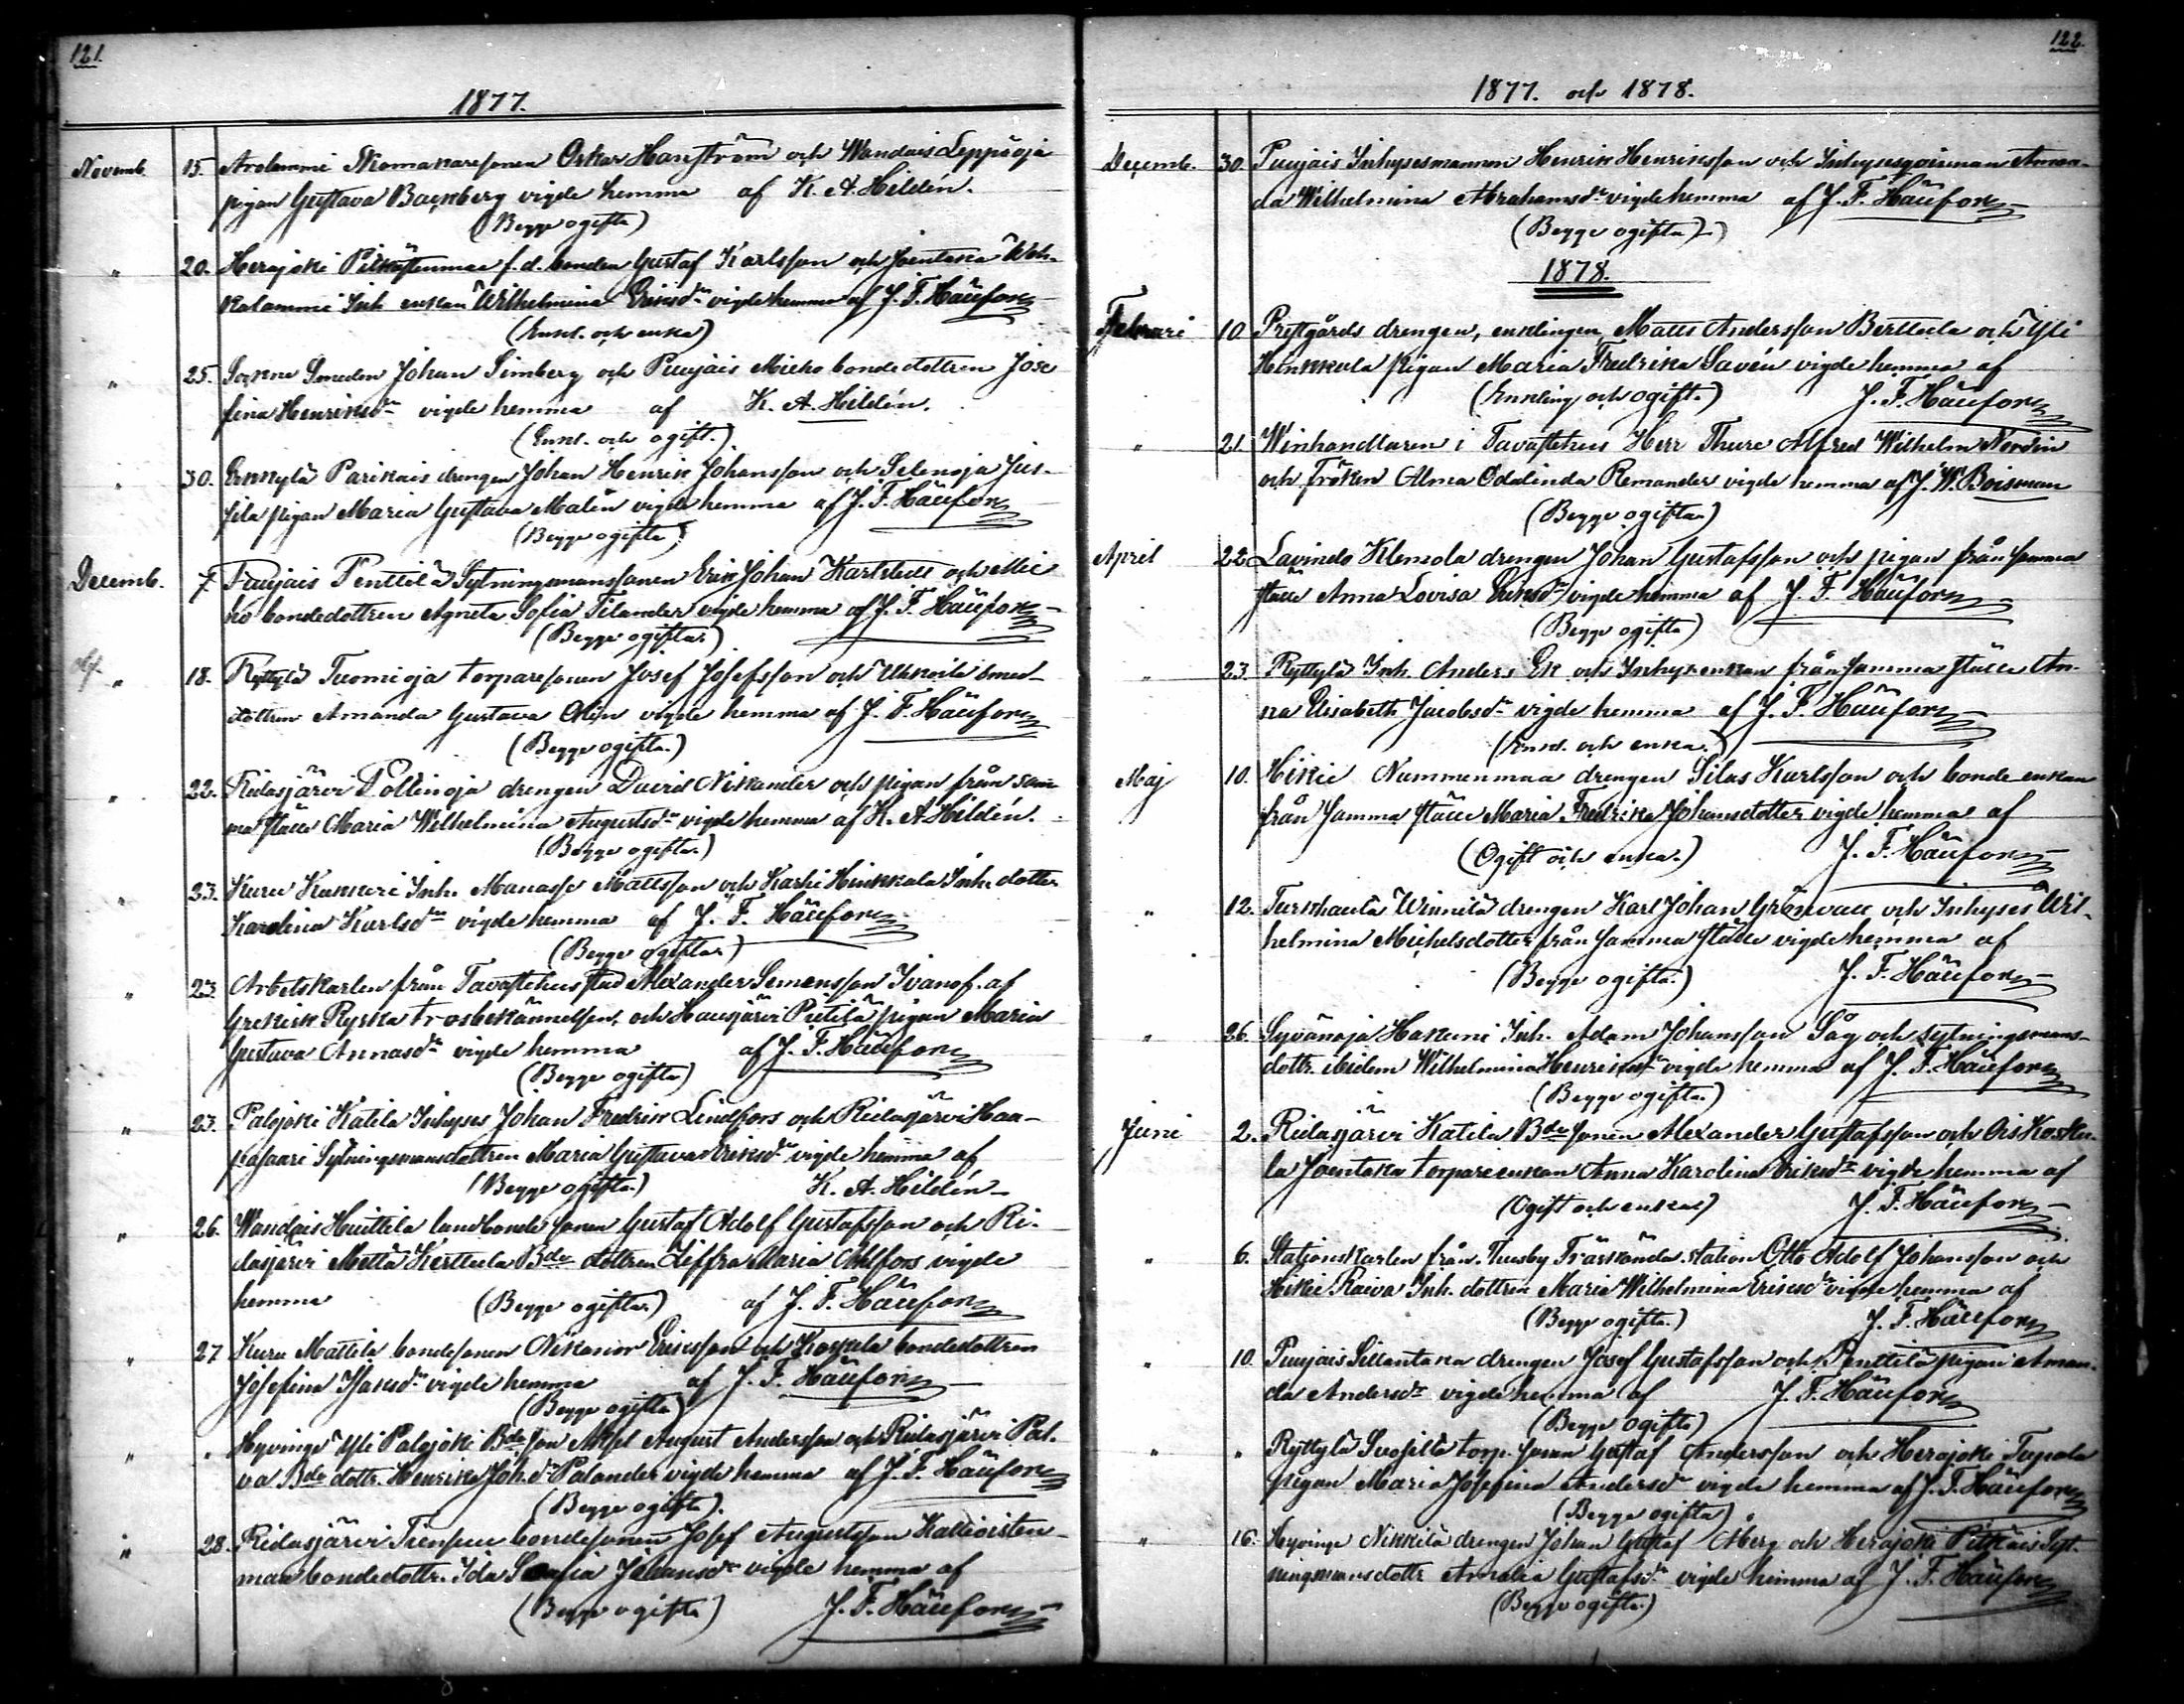 121.
1877.
Novemb. 15. Arolammi Skomakaresonen Oskar Hanström och Wandais Leppäoja
pigan Gustava Backberg vigde hemma af K. A. Hildén.
(Begge ogifta)
" 20. Herajoki f.d. bonden Gustaf Karlsson och Joentaka
Inh. enkan Wilhelmina Eriksdr vigde hemma af J. F. Hällfors
(Enkl. och enka)
" 25. Sockne Smeden Johan Simberg och Puujais Micko bondedottren Jose
fina Henriksdr vigde hemma af K. A. Hildén.
(Enkl. och ogift.)
" 30. Erkkylä Parikais drengen Johan Henrik Johansson och Selenoja Jus-
sila pigan Maria Gustava Malin vigde hemma af J. F. Hällfors
(Begge ogifta)
Decemb. 7. Puujais Penttilä Sytningsmanssonen Erik Johan Karlstedt och Mic
ko bondedottren Agneta Sofia Filander vigde hemma af J. F. Hällfors
(Begge ogifta.)
" 18. Ryttylä Tuomioja torparesonen Josef Josefsson och Uhkoila smed-
dottren Amanda Gustava Olin vigde hemma af J. F. Hällfors
(Begge ogifta.)
" 22. Ridasjärvi Pöllinoja drengen David Nikander och pigan från sam-
ma ställe Maria Wilhelmina Augustsdr vigde hemma af K. A. Hildén.
(Begge ogifta.)
" 23. Kuru Kukkuri Inh. Manasse Mattsson och Karhi Hinkkala Inh. dotter
Karolina Karlsdr vigde hemma af J. F. Hällfors
(Begge ogifta.)
" 23. Arbetskarlen från Tavastehus stad Alexander Semensson Ivanof. af
Grekisk Ryska trosbekännelsen, och Hausjärvi Pietilä pigan Maria
Gustava Annasdr vigde hemma af J. F. Hällfors
(Begge ogifta)
" 23. Palojoki Katila Inhyses Johan Fredrik Lindfors och Ridasjärvi Haa-
pasaari Sytningsmansdottren Maria Gustava Eriksdr vigde hemma af
(Begge ogifta.) K. A. Hildén
" 26. Wandais Huittila landbonde sonen Gustaf Adolf Gustafsson och Ri-
dasjärvi Mattä Kerttula Bde dottren Zeffra Maria Ahlfors vigde
hemma (Begge ogifta.) af J. F. Hällfors
" 27 Kuru Mattila bondesonen Nikanor Eriksson och Koskela bondedottren
Josefina Isaksdr vigde hemma af J. F. Hällfors
(Begge ogifta)
" " Hyvinge Yli Palojoki Bde son Axel August Andersson och Ridasjärvi Pal-
va Bde dottr. Henrika Joh.dr Palander vigde hemma af J. F. Hällfors
(Begge ogifta).
" 28. Ridasjärvi bondesonen Josef Augustsson Kallioisten-
maa bondedottr. Ida Serafia Johansdr vigde hemma af
(Begge ogifta) J. F. Hällfors
122.
1877. och 1878.
Decemb. 30. Puujais Inhysesmannen Henrik Henriksson och Inhysesqvinnan Aman-
da Wilhelmina Abrahamsdr vigde hemma af J. F. Hällfors
(Begge ogifta)
1878.
Februari 10. Prestgårds drengen, enklingen Matts Andersson Berttula och Yli
Hinkkala pigan Maria Fredrika Savén vigde hemma af
(Enkling och ogift.) J. F. Hällfors
" 21. Winhandlaren i Tavastehus Herr Thure Alfred Wilhelm Nordin
och Fröken Alma Odalinda Remander vigde hemma af J. W. Boisman
(Begge ogifta.)
April 22. Lavinds Klemola drengen Johan Gustafsson och pigan från samma
ställe Anna Lovisa Eriksdr vigde hemma af J. F. Hällfors
(Begge ogifta)
" 23. Ryttylä Inh. Anders Ek och Inhys.enkan från samma ställe An-
na Elisabeth Jacobsdr vigde hemma af J. F. Hällfors
(Enkl. och enka.)
Maj 10. Hikie Nummenmaa drengen Silas Karlsson och bonde enkan
från samma ställe Maria Fredrika Johansdotter vigde hemma af
(Ogift och enka.) J. F. Hällfors
" 12. Turkhauta Winnilä drengen Karl Johan Grönvall och Inhyses Wil-
helmina Michelsdotter från samma ställe vigde hemma af
(Begge ogifta.) J. F. Hällfors
" 26. Syvänoja Hakuni Inh. Adam Johansson Såg och sytningsmans-
dottr. ibidem Wilhelmina Henriksdr vigde hemma af J. F. Hällfors
(Begge ogifta.)
Juni 2. Ridasjärvi Katila Bde sonen Alexander Gustafsson och Ois Koske-
la Joentaka torpareenkan Anna Karolina Eriksdr vigde hemma af
(Ogift och enka) J. F. Hällfors
" 6. Stationskarlen från Thusby Träskända station Otto Adolf Johansson och
Hikie Raiva Inh. dottren Maria Wilhelmina Ericsdr vigde hemma af
(Begge ogifta.) J. F. Hällfors
" 10. Puujais Sillantaka drengen Josef Gustafsson och Penttilä pigan Aman-
da Andersdr vigde hemma af J. F. Hällfors
(Begge ogifta)
" " Ryttylä torp. sonen Gustaf Andersson och Herajoki Tapola
pigan Maria Josefina Andersdr vigde hemma af J. F. Hällfors
(Begge ogifta)
" 16. Hyvinge Nikkilä drengen Johan Gustaf Åberg och Herajoki Pitkäis Syt-
ningsmansdottr Amalia Gustafsdr vigde hemma af J. F. Hällfors
(Begge ogifta.)